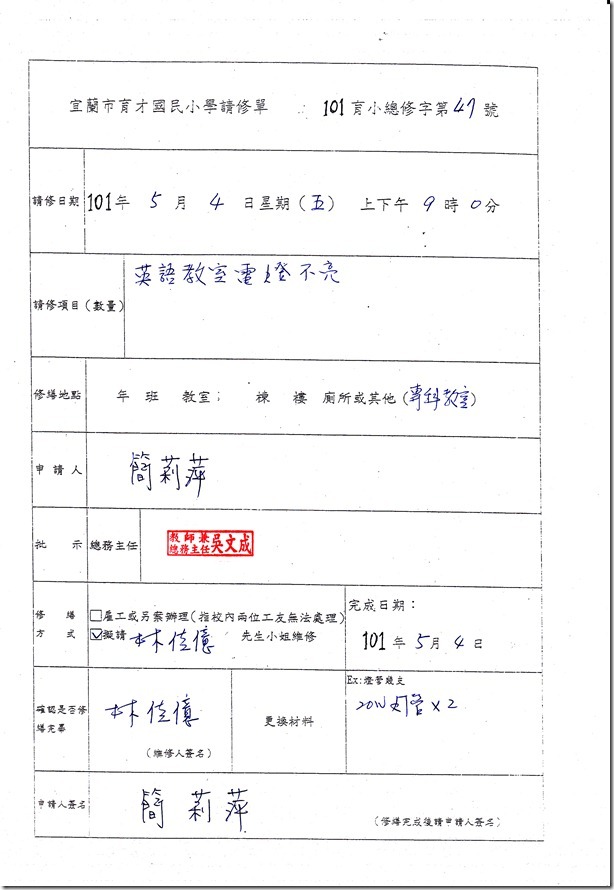 宜蘭市育才國民小學請修單 101育小總修字第47號
請修日期 101年 5 月 4 日星期(五) 上下午 9 時 0 分
請修項目(數量) 英語教室電燈不亮
修繕地點 年 班 教室; 棟 樓 廁所或其他(專科教室)
申請人 簡莉萍
批示 總務主任 教師兼總務主任吳文成
修繕方式
□雇工或另案辦理(指校內兩位工友無法處理)
☑擬請 林佳億 先生小姐維修
完成日期:
101 年 5 月 4 日
確認是否修繕完畢
林佳億
(維修人簽名)
更換材料
Ex:燈管幾支
20W燈管x2
申請人簽名 簡莉萍
(修繕完成後請申請人簽名)